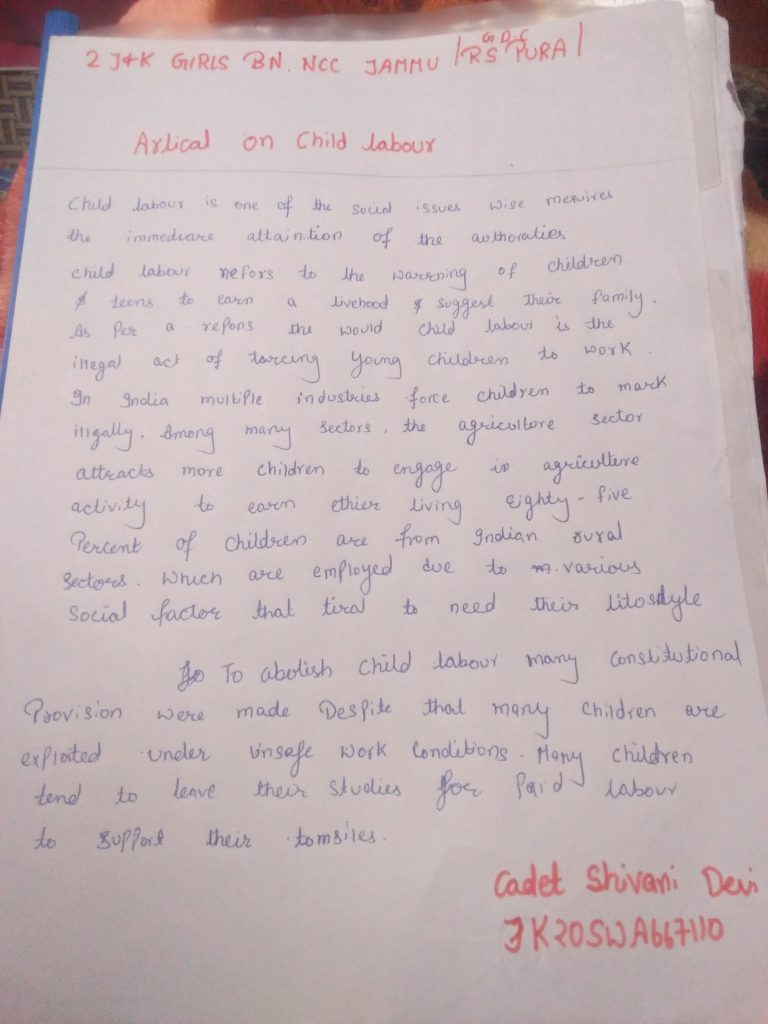 2 J&K GIRLS BN. NCC JAMMU | RS PURA |
GDC
Artical on Child labour
Child labour is one of the social issues wise mequires
the immediare attaintion of the authoraties
child labour nefors to the warrning of children
& teens to earn a livehood & suggest their family.
As Per a repons the would child labour is the
illegal act of torcing Young children to work.
In India multiple industries force children to mark
illgally. Among many sectors, the agricultore sector
attracts more children to engage in agriculture
activity to earn ethier living Eighty-five
Percent of children are from Indian rural
Sectors. Which are employed due to various
Social factor that tiral to need their litostdyle
To abolish Child labour many Constitutional
Provision were made Despite that many Children are
exploited under unsafe work Conditions. Many children
tend to leave their Studies for Paid labour
to Support their tomsiles.
Cadet Shivani Devi
JK20SWA667110